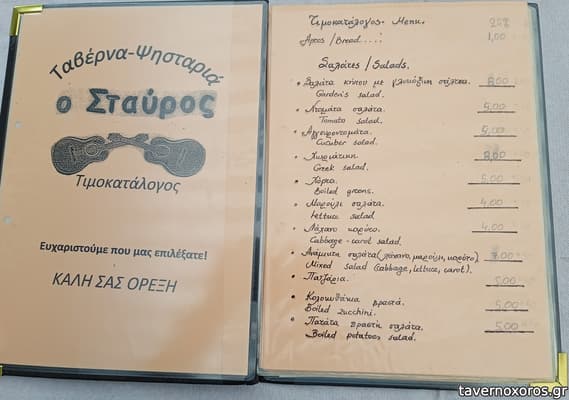 Ταβέρνα-Ψησταριά
ο Σταύρος
Τιμοκατάλογος
Ευχαριστούμε που μας επιλέξατε!
ΚΑΛΗ ΣΑΣ ΟΡΕΞΗ
Τιμοκατάλογος - Menu.
Άρτος /Bread....: 1,00
Σαλάτες / Salads.
Σαλάτα κήπου με γλυκόξινη σάλτσα. 8,00
Garden's salad.
Ντομάτα σαλάτα. 5,00
Tomato salad.
Αγγουροντομάτα. 5,00
Cucuber salad.
Χωριάτικη 8,00
Greek salad.
Χόρτα. 5,00
Boiled greens.
Μαρούλι σαλάτα. 4,00
Lettuce salad
Λάχανο καρότο. 4,00
Cabbage-carot salad.
Ανάμικτη σαλάτα (λάχανο, μαρούλι, καρότο) 7,00
Mixed salad (cabbage, lettuce, carot).
Πατζάρια. 5,00
Κολοκυθάκια βραστά. 5,00
Boiled zucchini.
Πατάτα βραστή σαλάτα. 5,00
Boiled potatoes salad.
tavernoxoros.gr